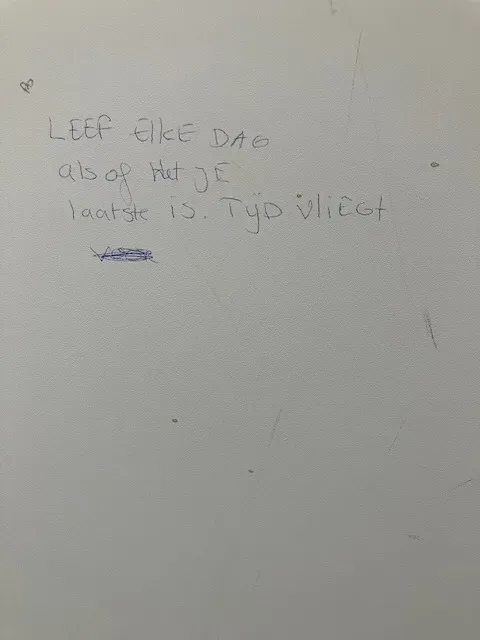 LEEF ElkE DAG
als of Het JE
laatste is. TijD vliEGt